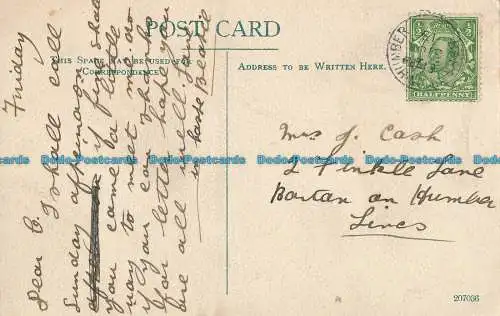 POST CARD
THIS SPACE MAY BE USED FOR
CORRESPONDENCE.
ADDRESS TO BE WRITTEN HERE.
HALFPENNY
HUMBER
Friday
Dear C. I shall call
Sunday afternoon
if fine shall
you came a little
way to meet me do
if you can. Thanks
for letter hope you
are all well. Love
in haste
Mrs J. Cash
2 Finkle Lane
Barton on Humber
Lincs
207036
Dodo-Postcards Dodo-Postcards Dodo-Postcards Dodo-Postcards Dodo-Postcards Dodo-Postcards